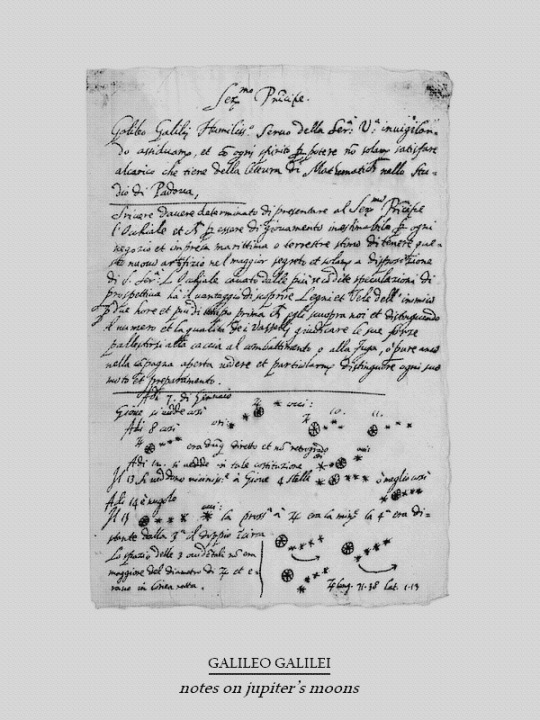 Ser.mo Principe.
Galileo Galilej Humiliss.o Servo della Ser.a V.a invigilan-
do assiduam.e, et cō ogni spirito p potere nō solam.e satisfare
al carico che tiene della lettura di Matematich nello Stu-
dio di Padova,
Scrivere davere determinato di presentare al Ser.mo Principe
l'Ochiale et p essere di giovamento inestimabile p ogni
negozio et impresa marittima o terrestre stimo di tenere que-
sto nuovo artifizio nel maggior segreto et solam.e a disposizione
di S. Ser.a L'Ochiale cavato dalle più recondite speculazioni di
prospettiva ha il vantaggio di scoprire Legni et Vele dell'inimico
p due hore et più di tempo prima ch egli scuopra noi et distinguendo
il numero et la qualità de i Vasselli giudicare le sue forze
pallestirsi alla caccia al combattimento o alla fuga, o pure anco
nella cāpagna aperta vedere et particolarm.e distinguere ogni suo
moto et preparamento.
Adi 7. di Gennaio
Giove si vedde così
Adi 8 così
era dūq diretto et nō retrogrado
Adi 12. si vedde in tale costituzione
Il 13 si veddono vicinis.e à Giove 4 stelle ò meglio così
Adi 14 è nugolo
Il 15 la pross.a à ♃ era la min.e la 4.a era di-
stante dalla 3.a il doppio
Lo spazio delle 3 occidētali nō era
maggiore del diametro di ♃ et e-
rano in linea retta.
♃ long. 71.38 Lat. 1.13
GALILEO GALILEI
notes on jupiter's moons